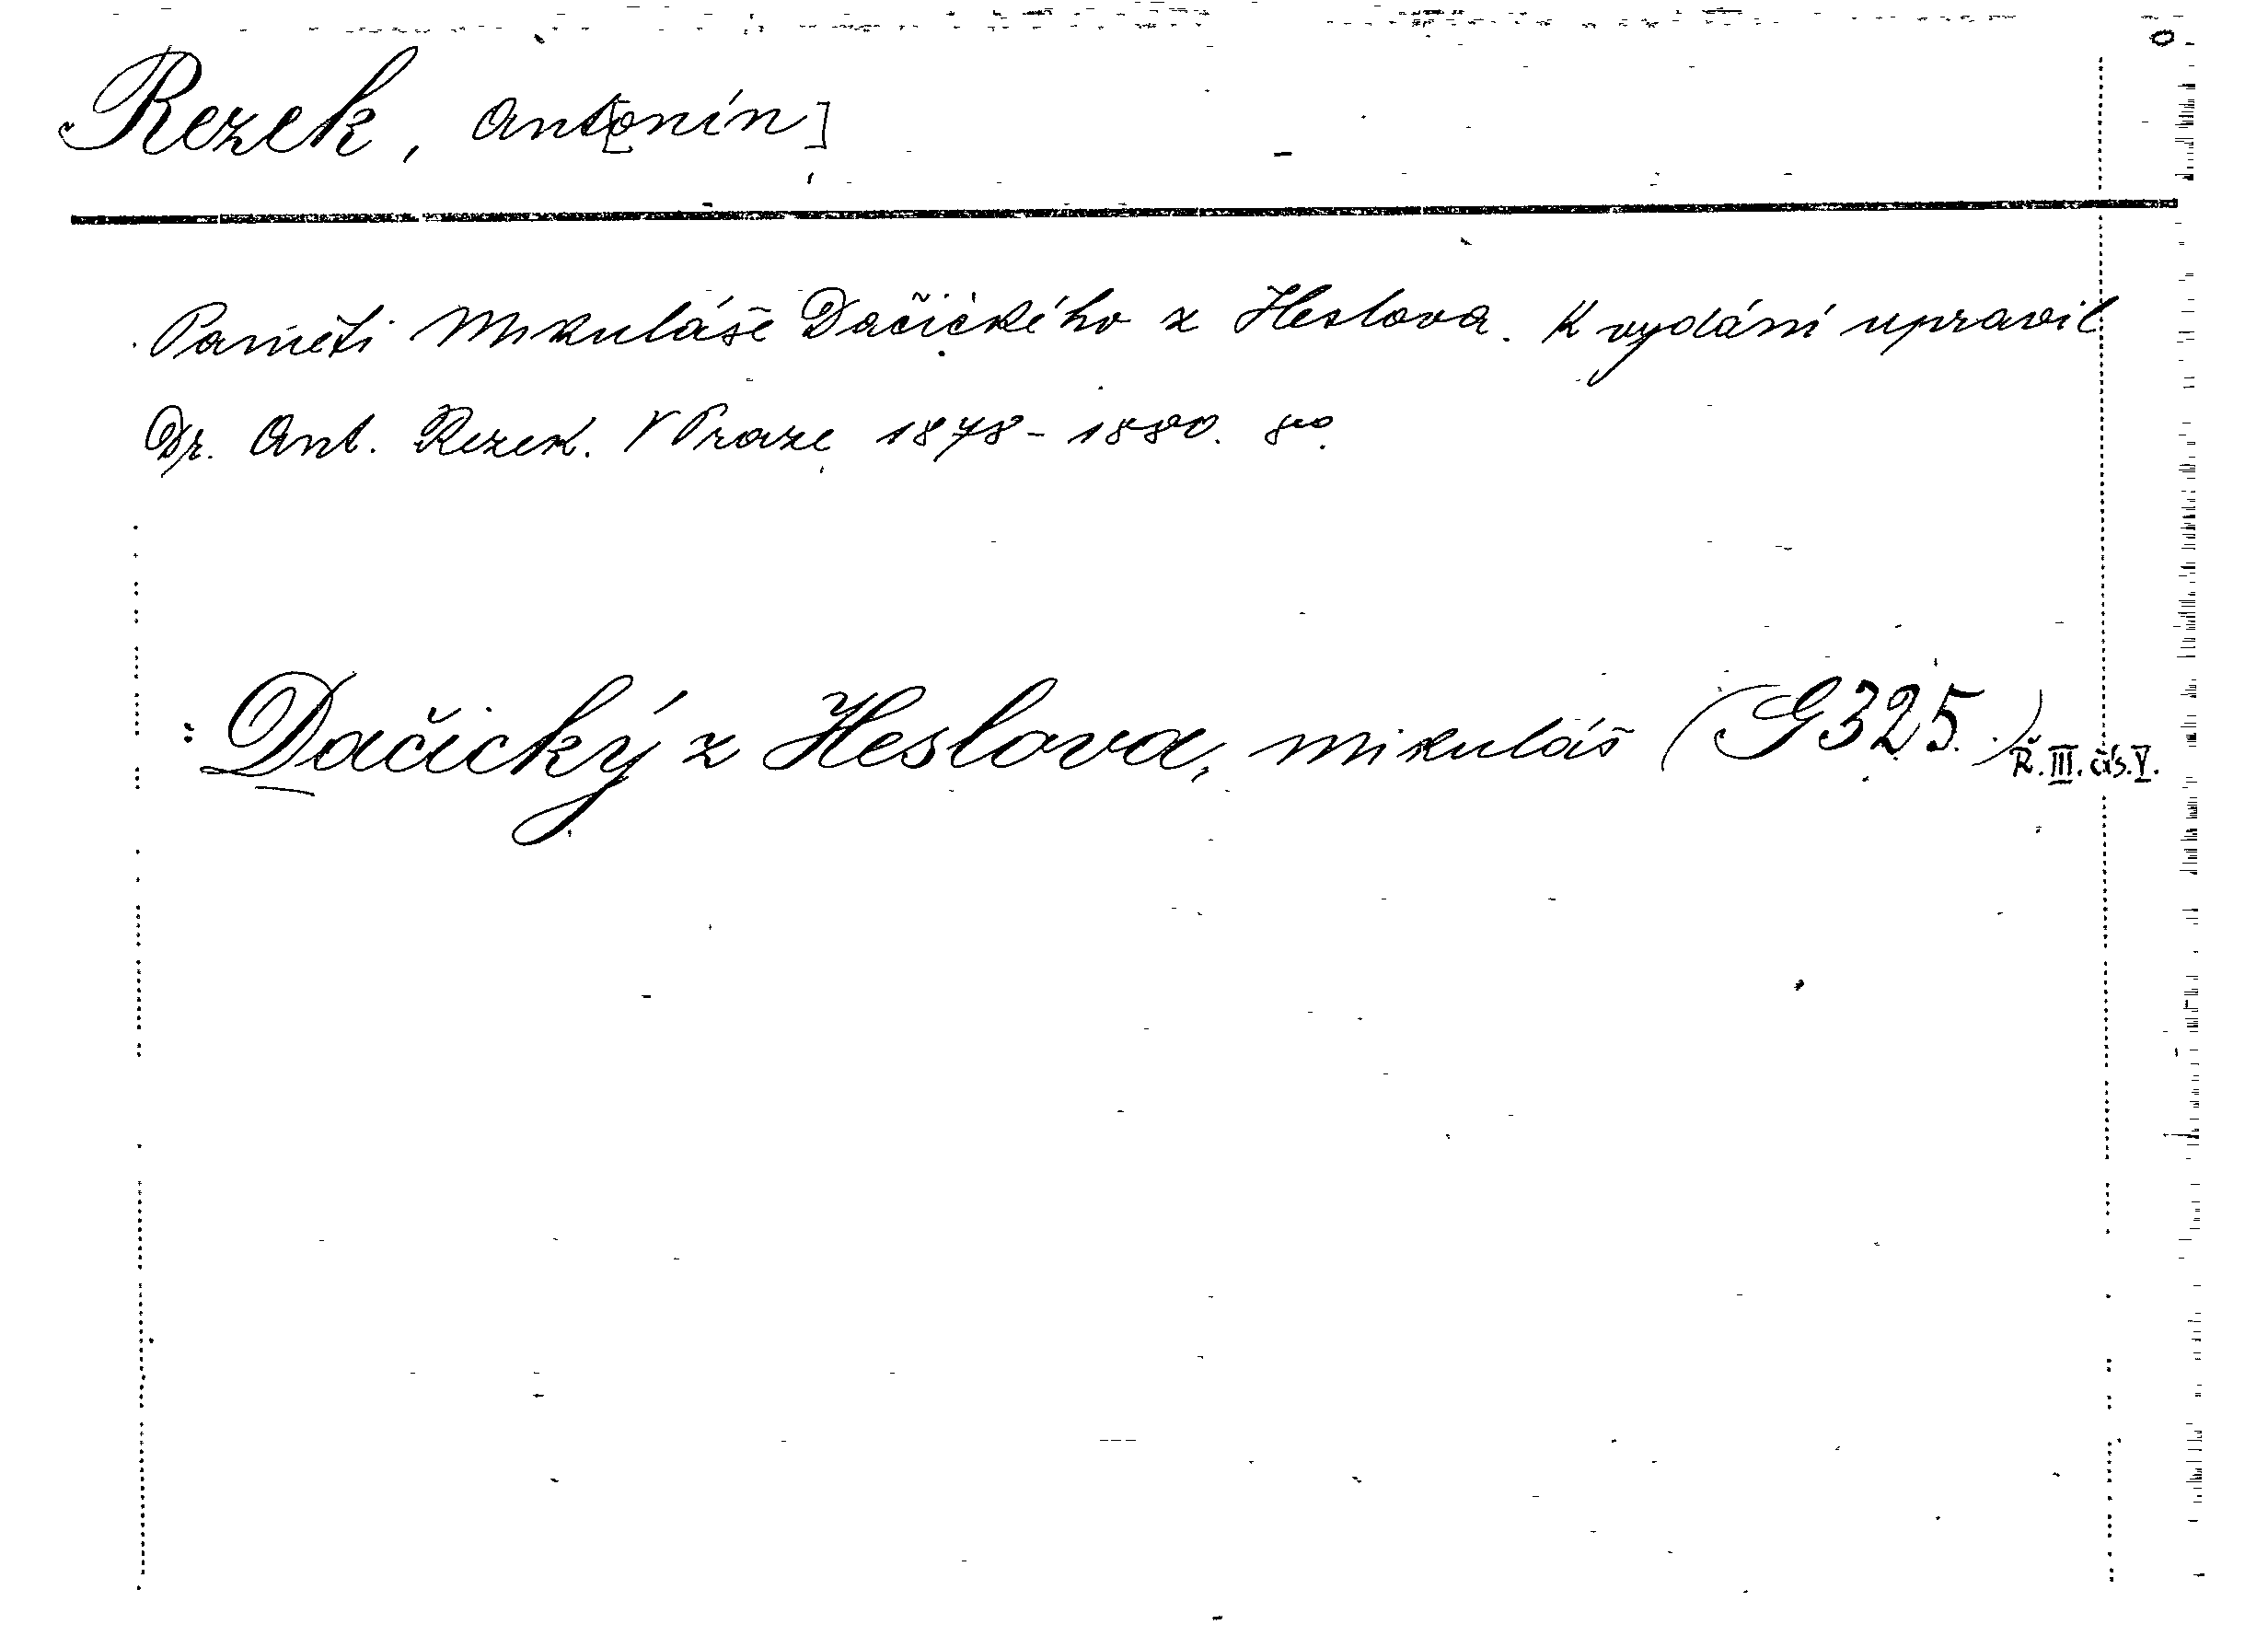 Rezek, Ant[onín]
Paměti Mikuláše Dačického z Heslova. K vydání upravil
Dr. Ant. Rezek. V Praze 1878-1880. 8vo.
: Dačický z Heslova, Mikuláš (G325.) Ř.III.čís.V.